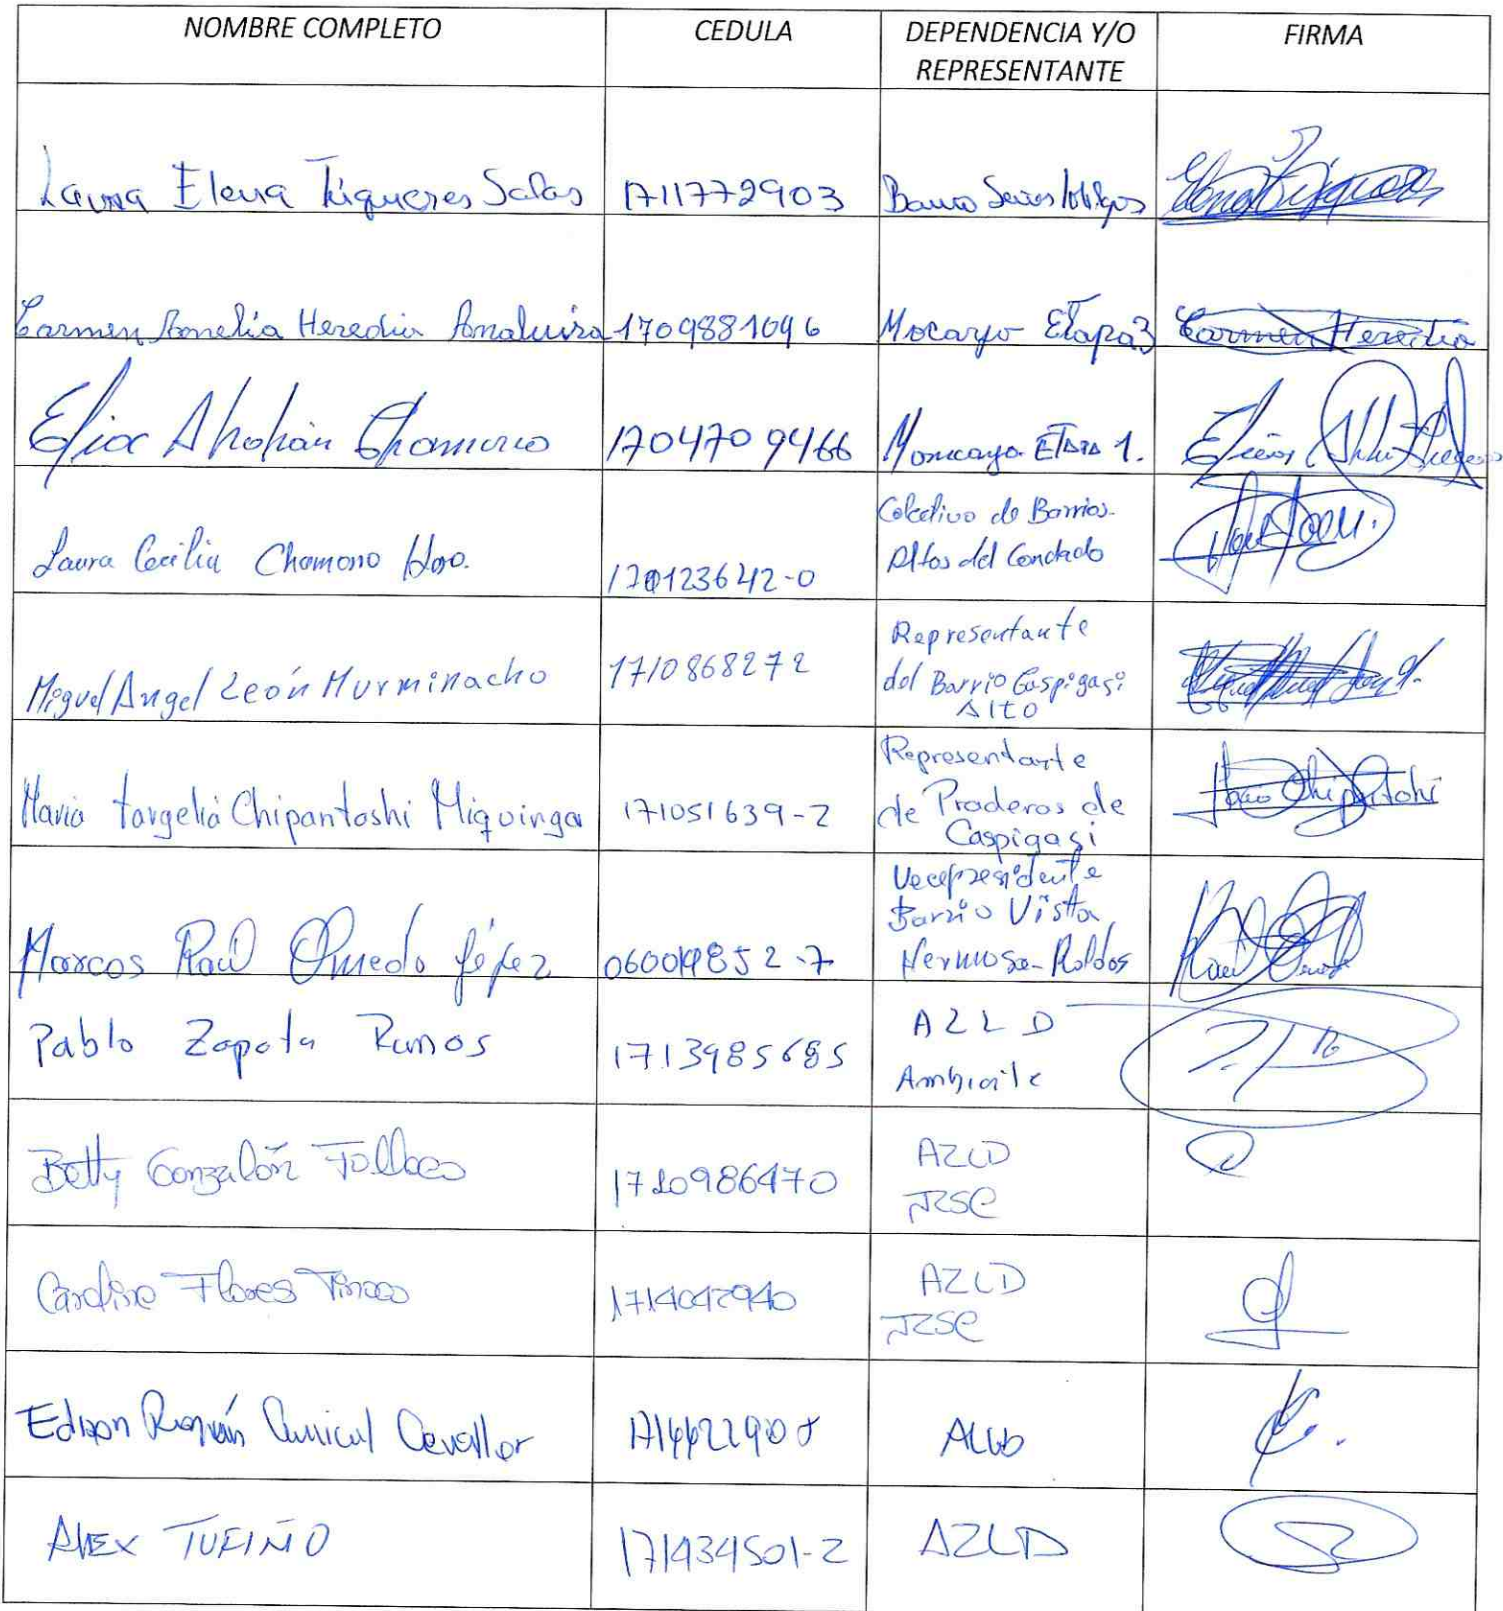 NOMBRE COMPLETO CEDULA DEPENDENCIA Y/O REPRESENTANTE FIRMA
Laura Elena Tiqueres Salas 1711772903 Barro
Carmen Amelia Heredia Amaluisa 1709881096 Mocayo Etapa3 Carmen Heredia
Elias Abrahán Chamorro 1704709466 Moncayo ETAPA 1.
Laura Cecilia Chamorro 170123642-0 Colectivo de Barrios
Altos del Condado
Miguel Angel León Murminacho 1710868272 Representante
del Barrio Caspigasi
Alto
Maria Targelia Chipantashi Miquinga 171051639-2 Representante
de Praderos de
Caspigasi
Marcos Raúl Olmedo Yépez Vecepresidente
Barrio Vista
Hermosa-Roldos
Pablo Zapata Ramos 1713985685 AZLD
Ambiente
Betty Gonzalón 1710986470 AZLD
Flores Tinoco 1714042940 AZLD
Edison Román Cevallos
ALEX TUFIÑO 171434501-2 AZLD